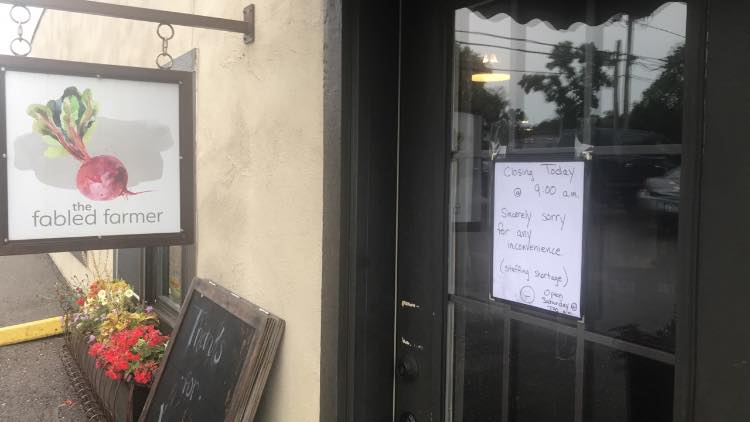 the
fabled farmer
Closing Today
@ 9:00 a.m.
Sincerely sorry
for any
inconvenience
(staffing shortage)
Open
Saturday @
Thanks
for